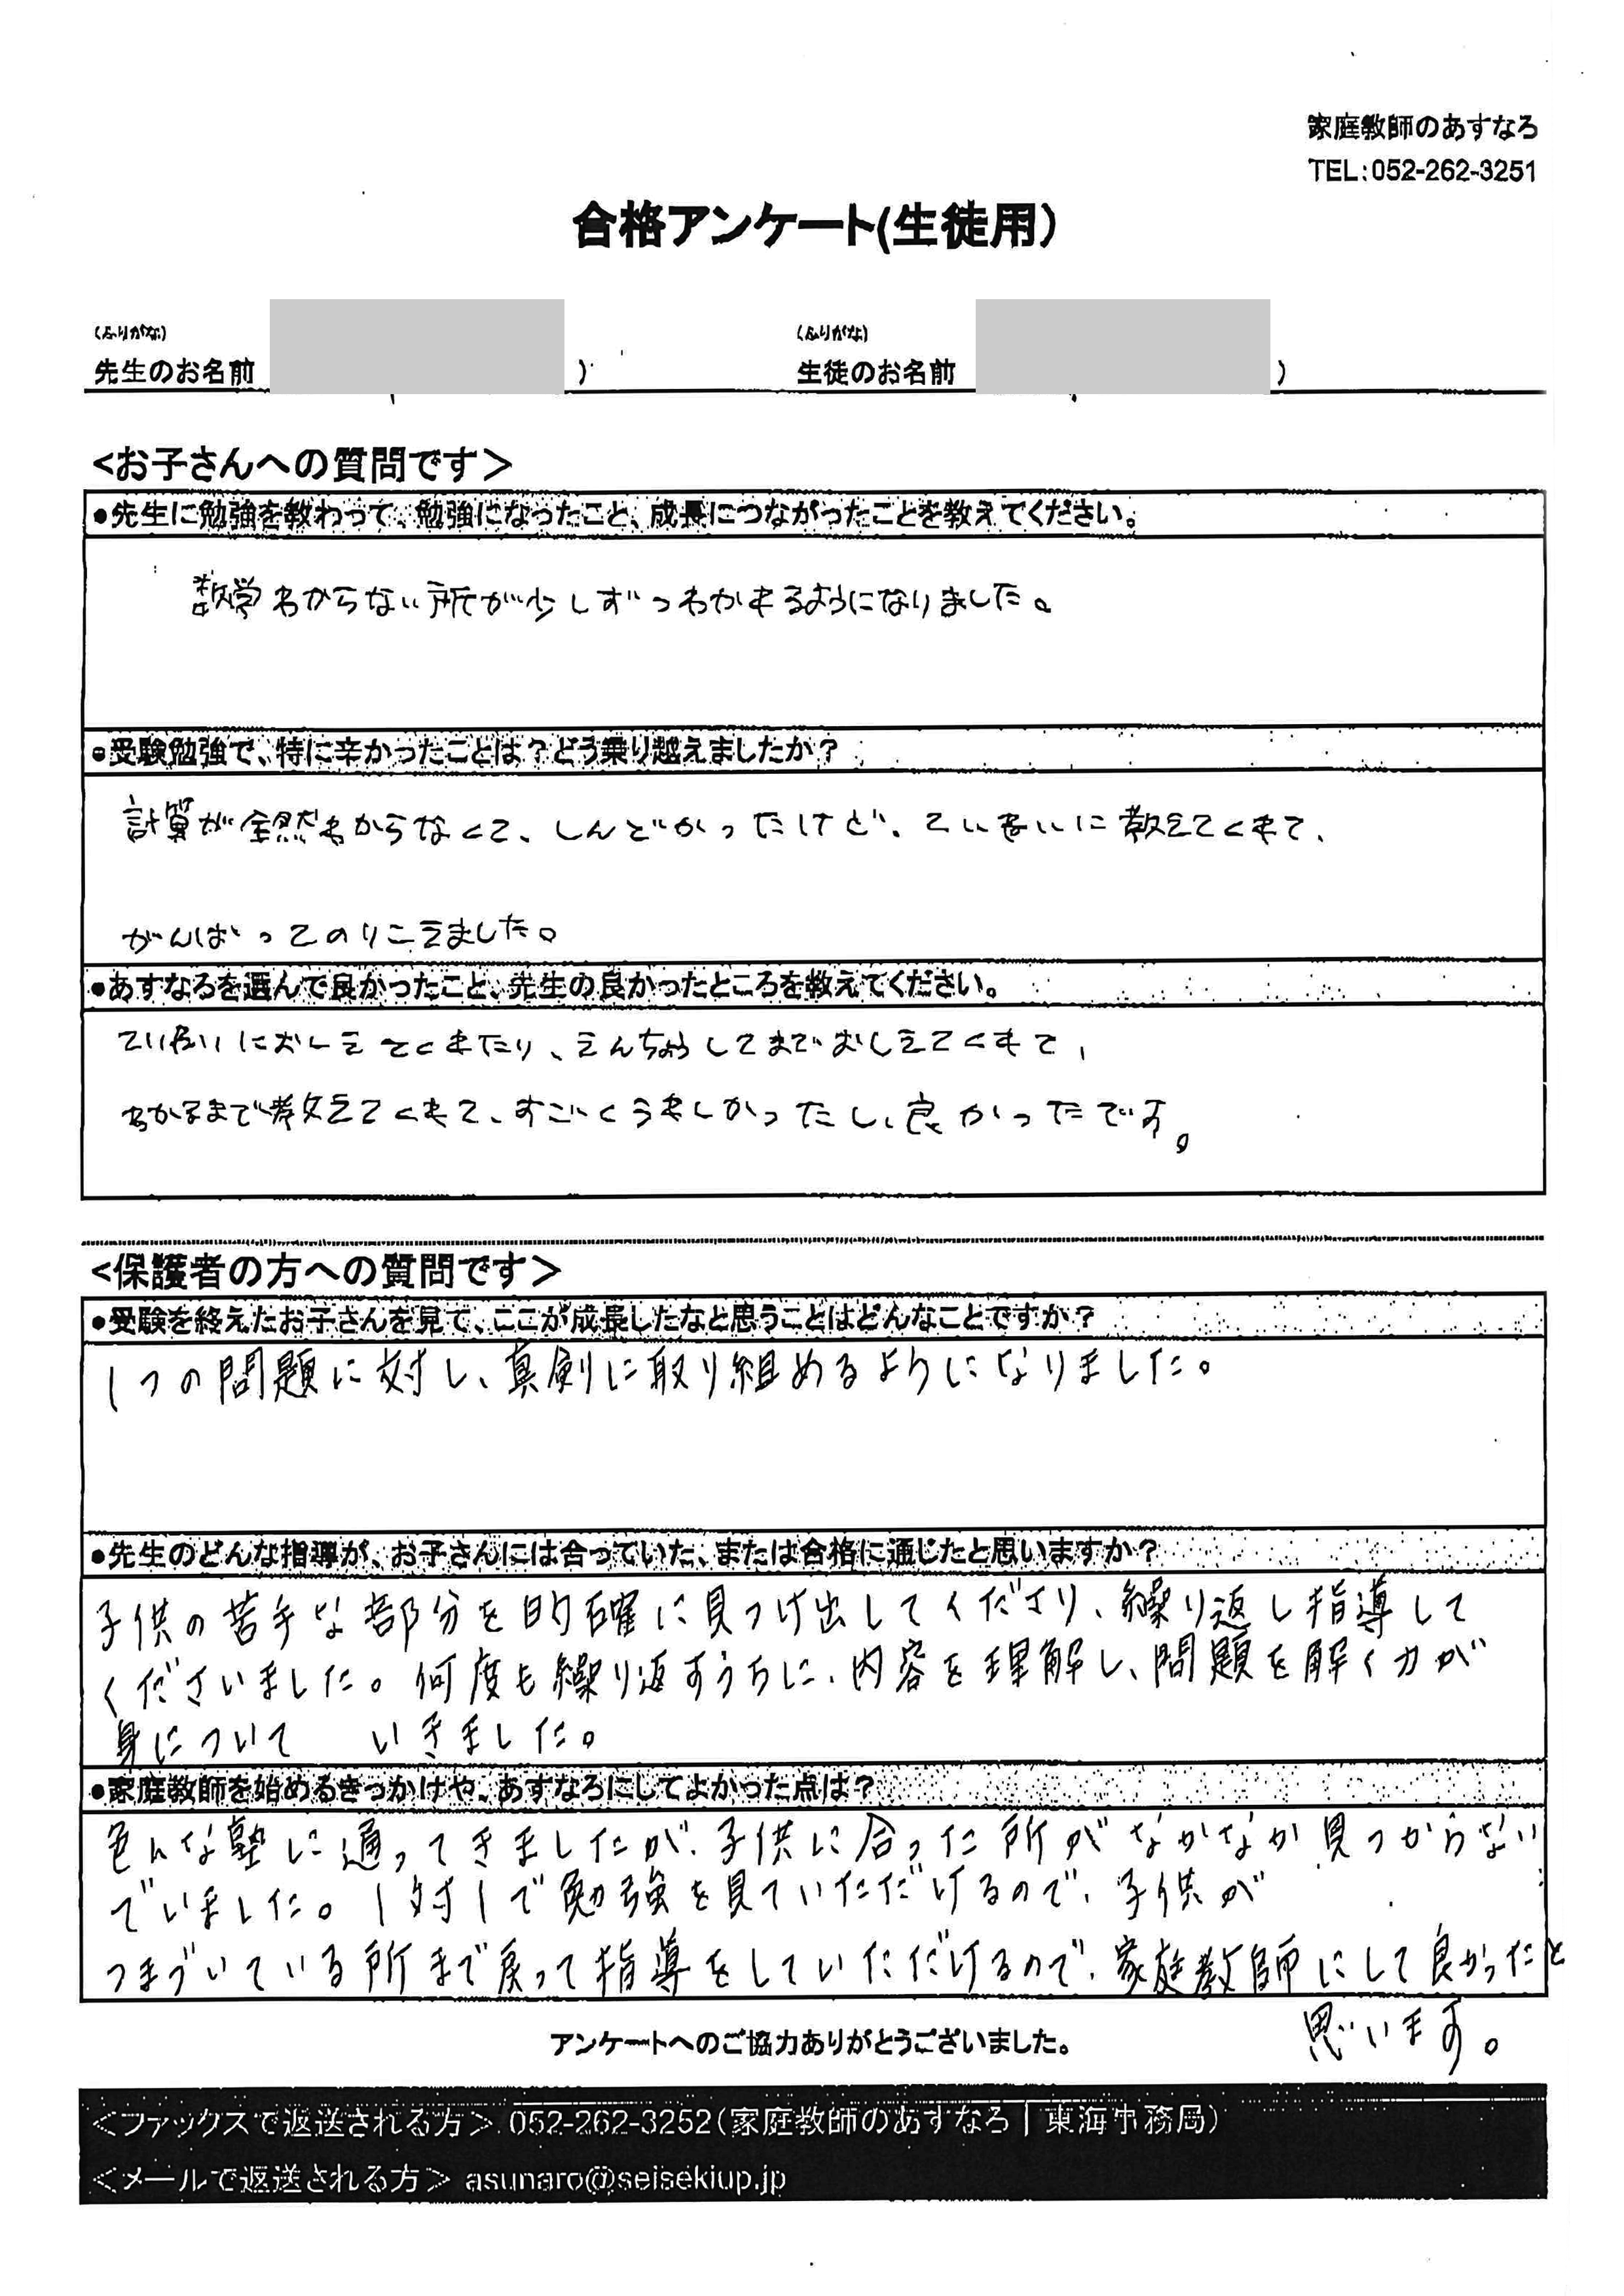 家庭教師のあすなろ
TEL:052-262-3251
合格アンケート(生徒用)
(ふりがな)
先生のお名前 )
(ふりがな)
生徒のお名前 )
<お子さんへの質問です>
●先生に勉強を教わって、勉強になったこと、成長につながったことを教えてください。
数学わからない所が少しずつわかれるようになりました。
●受験勉強で、特に辛かったことは?どう乗り越えましたか?
計算が全然わからなくて、しんどかったけど、ていねいに教えてくれて、
がんばってのりこえました。
●あすなろを選んで良かったこと、先生の良かったところを教えてください。
ていねいにおしえてくれたり、えんちょうしてまでおしえてくれて、
わかるまで教えてくれて、すごくうれしかったし、良かったです。
<保護者の方への質問です>
●受験を終えたお子さんを見て、ここが成長したなと思うことはどんなことですか?
1つの問題に対し、真剣に取り組めるようになりました。
●先生のどんな指導が、お子さんには合っていた、または合格に通じたと思いますか?
子供の苦手な部分を的確に見つけ出してくださり、繰り返し指導して
くださいました。何度も繰り返すうちに、内容を理解し、問題を解く力が
身について いきました。
●家庭教師を始めるきっかけや、あすなろにしてよかった点は?
色んな塾に通ってきましたが、子供に合った所がなかなか見つからない
でいました。1対1で勉強を見ていただけるので、子供が
つまづいている所まで戻って指導をしていただけるので、家庭教師にして良かったと
思います。
アンケートへのご協力ありがとうございました。
<ファックスで返送される方> 052-262-3252(家庭教師のあすなろ|東海事務局)
<メールで返送される方> asunaro@seisekiup.jp